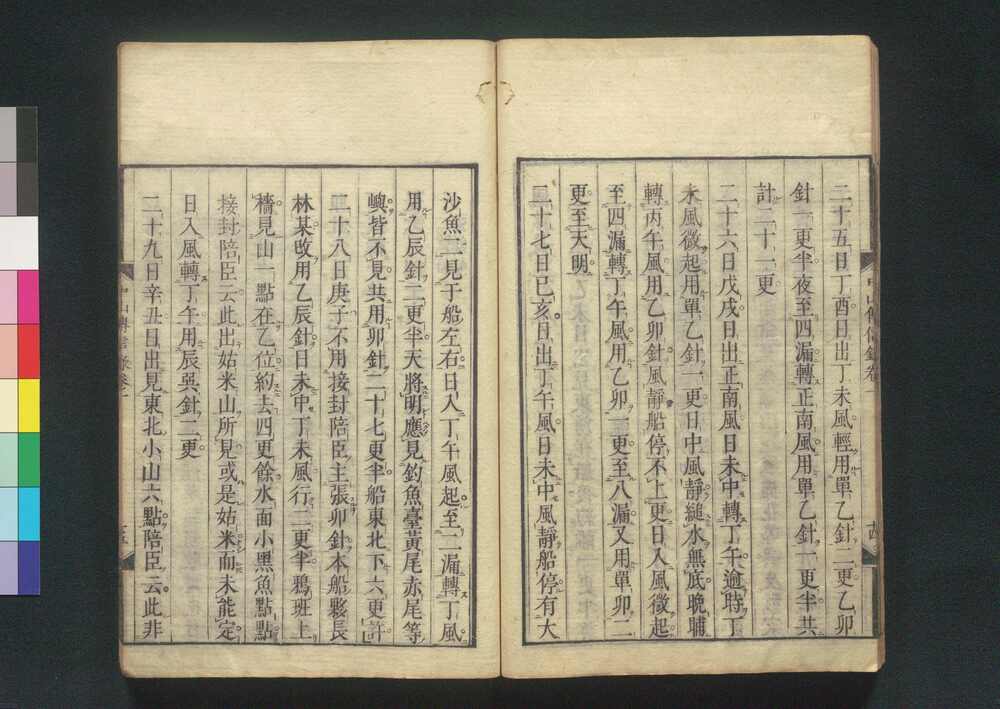 二十五日丁酉日出丁未風輕用單乙針二更乙卯
針一更半夜至四漏轉正南風用單乙針一更半共
計二十一更
二十六日戊戌日出正南風日未中轉丁午逾時丁
未風微起用單乙針一更日中風靜縋水無底晚晡
轉丙午風用乙卯針風靜船停不上更日入風微起
至四漏轉丁午風用乙卯一更至八漏又用單卯二
更至天明
二十七日己亥日出丁午風日未中風靜船停有大
中山傳信錄卷一
十四
沙魚二見于船左右日入丁午風起至二漏轉丁風
用乙辰針二更半天將明應見釣魚臺黃尾赤尾等
嶼皆不見共用卯針二十七更半船東北下六更許
二十八日庚子不用接封陪臣主張卯針本船夥長
林某改用乙辰針日未中丁未風行二更半鴉班上
檣見山一點在乙位約去四更餘水面小黑魚點點
接封陪臣云此出姑米山所見或是姑米而未能定
日入風轉丁午用辰巽針二更
二十九日辛丑日出見東北小山六點陪臣云此非
中山傳信錄卷一
十五